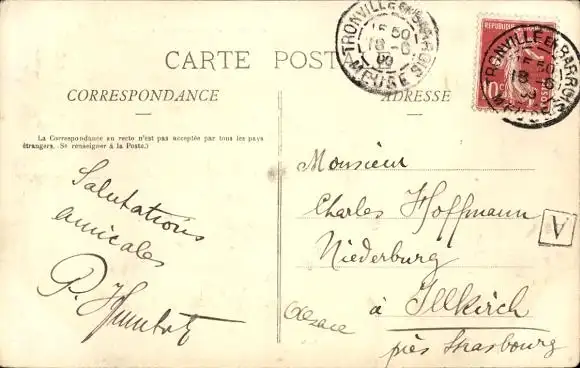 CARTE POSTALE
CORRESPONDANCE
ADRESSE
La Correspondance au recto n'est pas acceptée par tous les pays
étrangers. (Se renseigner à la Poste.)
Salutations
amicales
P. Humbert
Monsieur
Charles Hoffmann
Niederburg
à Illkirch
Alsace
près Strasbourg
A
TRONVILLE EN BARROIS
15 50
18 -6
09
MEUSE
10c
TRONVILLE EN BARROIS
18 -6
MEUSE